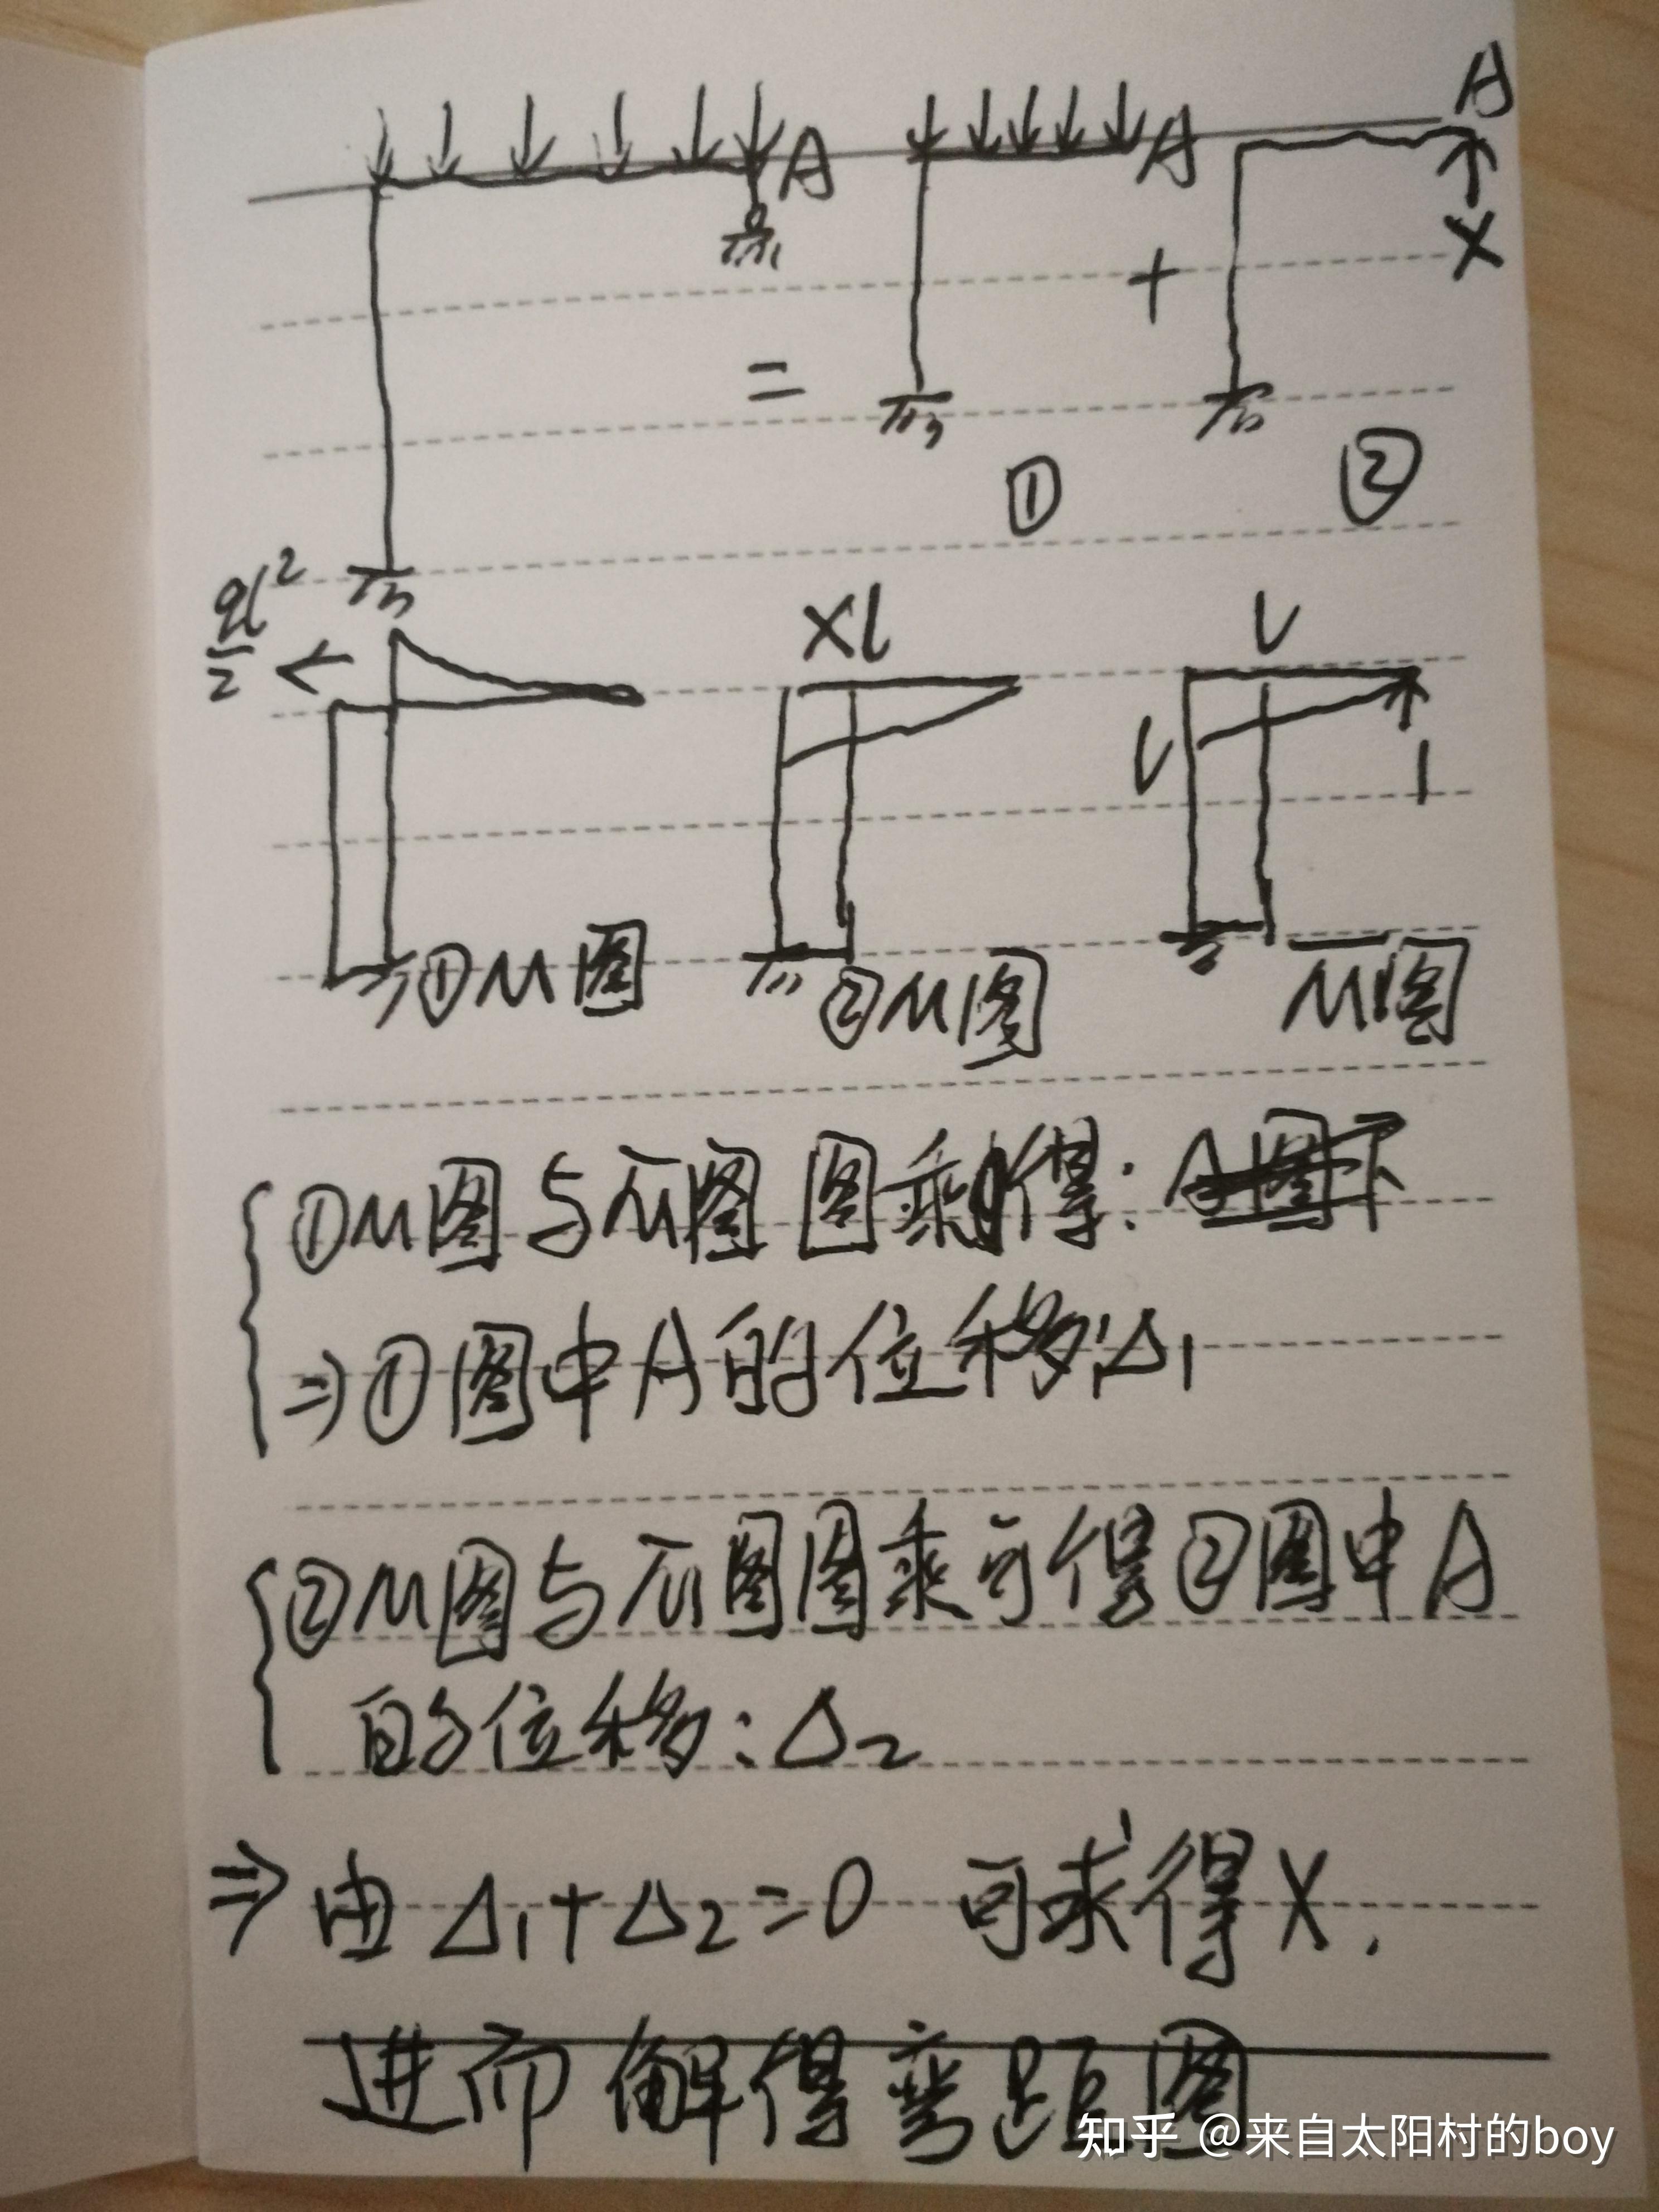 A A A
X
= +
① ②
ql²/2
Xl l
l 1
①M图 ②M图 M̄图
①M图与M̄图 图乘得:
⇒①图中A的位移:Δ₁
②M图与M̄图图乘可得②图中A
的位移:Δ₂
⇒ 由 Δ₁+Δ₂=0 可求得X.
进而解得弯距图
知乎 @来自太阳村的boy